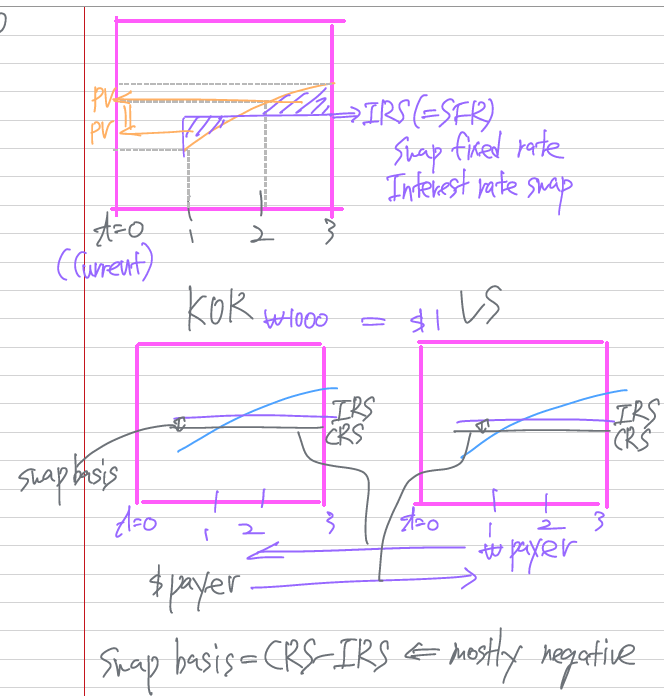 PV
PV
IRS(=SFR)
Swap fixed rate
Interest rate swap
t=0 1 2 3
(Current)
KOR ₩1000 = $1 US
IRS
CRS
IRS
CRS
swap basis
t=0 1 2 3
t=0 1 2 3
₩ payer
$ payer
Swap basis = CRS-IRS ⇐ mostly negative